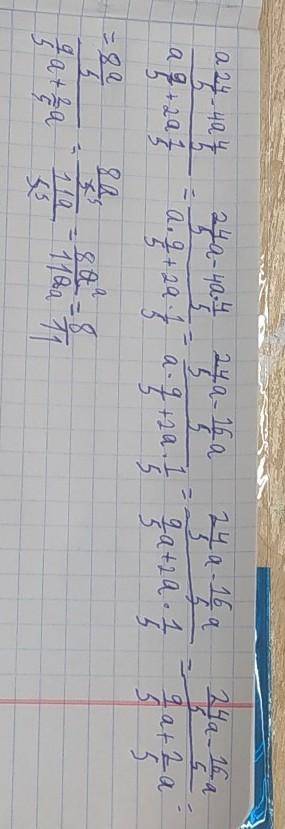 a 24/5 - 4a 4/5 / a 9/5 + 2a 1/5 = 24/5 a - 4a · 4/5 / a · 9/5 + 2a · 1/5 = 24/5 a - 16/5 a / a · 9/5 + 2a · 1/5 = 24/5 a - 16/5 a / 9/5 a + 2a · 1/5 = 24/5 a - 16/5 a / 9/5 a + 2/5 a =
= 8a/5 / 9/5 a + 2/5 a = 8a/5 / 11a/5 = 8a/11a = 8/11